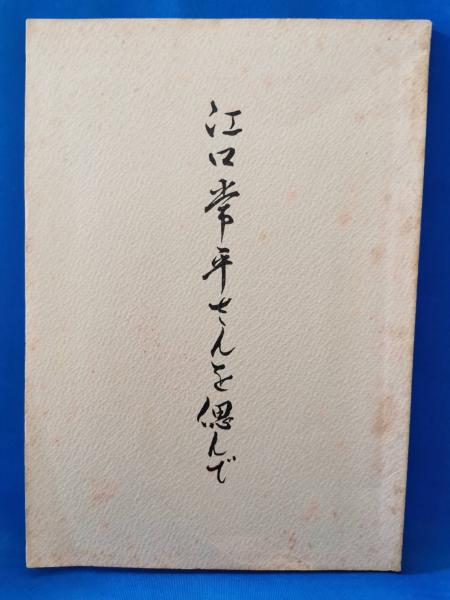 江口常平さんを偲んで